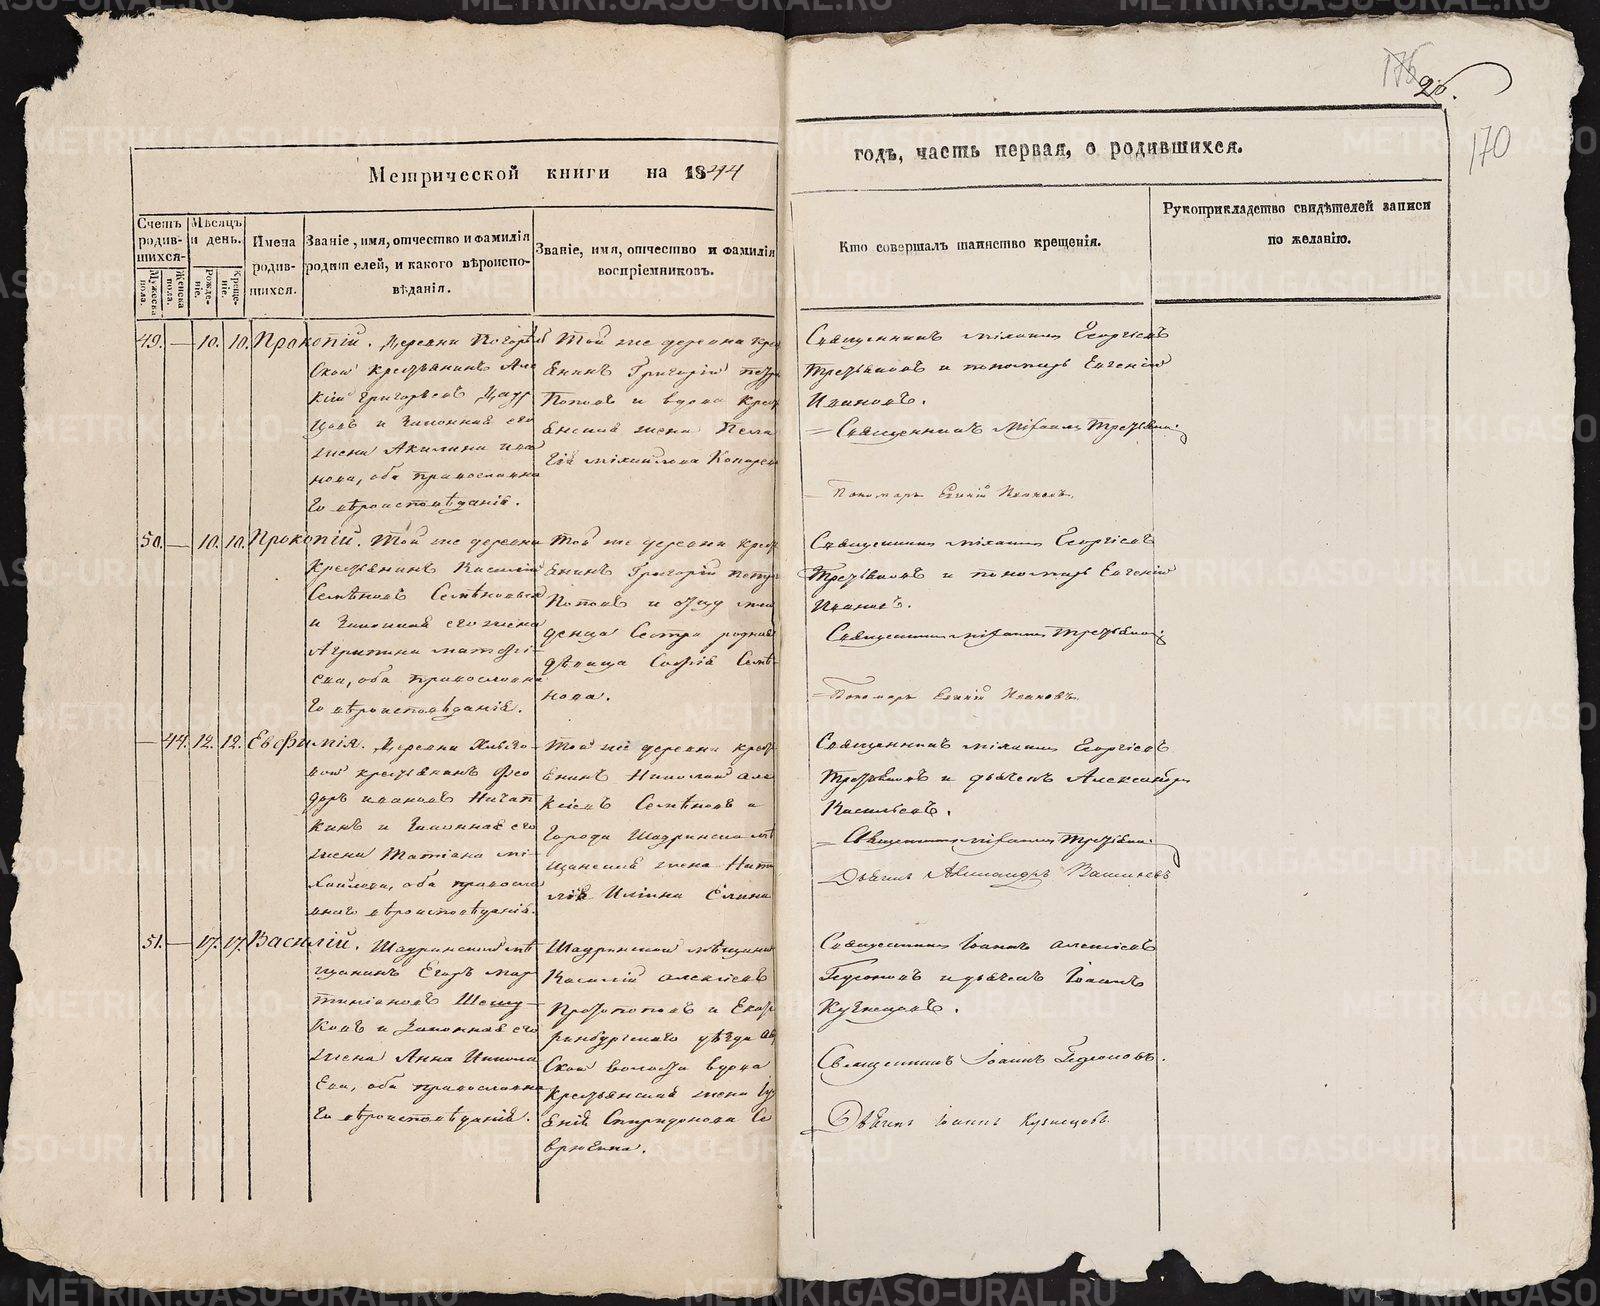 176
26.
170
Метрической книги на 1844
годъ, часть первая, о родившихся.
Счетъ родившихся.
Мужеска пола.
Женска пола.
Мѣсяцъ и день.
Рожденіе.
Крещеніе.
Имена родившихся.
Званіе, имя, отчество и фамилія
родителей, и какого вѣроиспо-
вѣданія.
Званіе, имя, отчество и фамилія
воспріемниковъ.
Кто совершалъ таинство крещенія.
Рукоприкладство свидѣтелей записи
по желанію.
49. — 10. 10. Прокопій.
Деревни
крестьянинъ Але
Григорьевъ
и законная его
жена Акилина Ива
нова, оба православна
го вѣроисповѣданія.
Той же деревни крес
янинъ Григорій Петр
Поповъ и вдова крес
янская жена Пела
гія Михайлова
Священникъ Михаилъ Георгіевъ
Трезвиновъ и пономарь Евгеній
Ивановъ.
Священникъ Михаилъ
Пономарь Евгеній Ивановъ.
50. — 10. 10. Прокопій.
Той же деревни
крестьянинъ Василій
Семёновъ
и законная его жена
Агрипина Матфѣ-
ева, оба православна
го вѣроисповѣданія.
Той же деревни крес
янинъ Григорій Петр
Поповъ и отцу мла
денца сестра родная
дѣвица Софія Семё-
нова.
Священникъ Михаилъ Георгіевъ
Трезвиновъ и пономарь Евгеній
Ивановъ.
Священникъ Михаилъ
Пономарь Евгеній Ивановъ.
— 44. 12. 12. Евфимія.
Деревни
вой крестьянинъ Фео
доръ Ивановъ
кинъ и законная его
жена Татіана Ми-
хайлова, оба правосла
внаго вѣроисповѣданія.
Той же деревни крест
янинъ Николай Але
ксіевъ Семёновъ и
города Шадринска мѣ
щанская жена Ната
лія Ильина
Священникъ Михаилъ Георгіевъ
Трезвиновъ и дьячекъ Александръ
Васильевъ.
Священникъ Михаилъ
Дьячекъ Александръ Васильевъ
51. — 17. 17. Василій.
Шадринской мѣ
щанинъ Егоръ Мар
тиніановъ
ковъ и законная его
жена Анна Никола
ева, оба православна
го вѣроисповѣданія.
Шадринской мѣщанинъ
Василій Алексіевъ
Протопоповъ и Екате
ринбургскаго уѣзда
ской волости вдова
крестьянская жена
Спиридонова Се
врюгина.
Священникъ Іоаннъ Алексіевъ
Гедеоновъ и дьячекъ Іоаннъ
Кузнецовъ.
Священникъ Іоаннъ Гедеоновъ.
Дьячекъ Іоаннъ Кузнецовъ.
METRIKI.GASO-URAL.RU